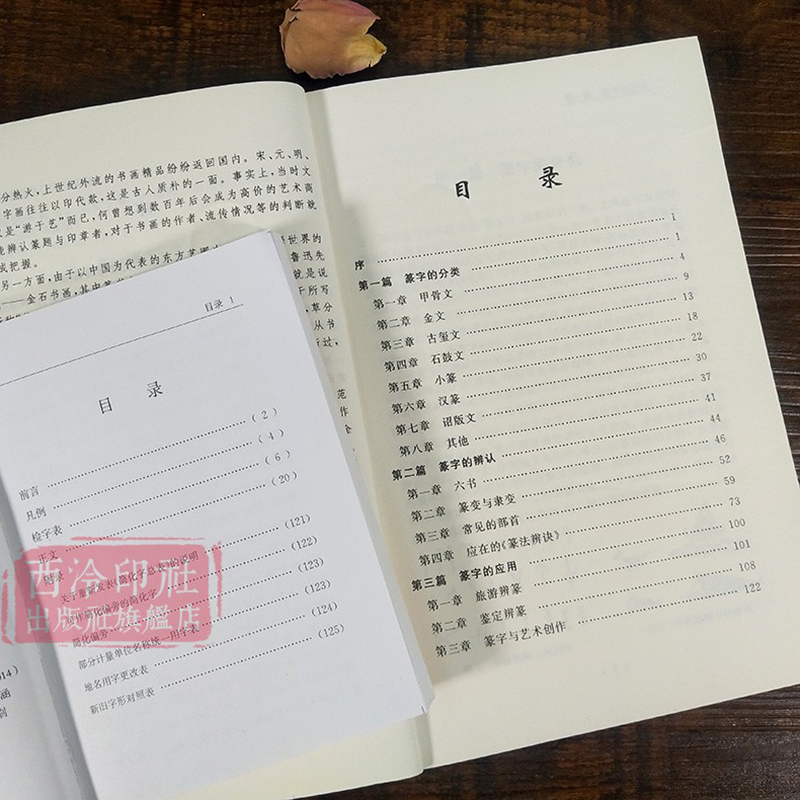 分热火，上世纪外流的书画精品纷纷返回国内。宋、元、明、
字画往往以印代款，这是古人质朴的一面。事实上，当时文
是“游于艺”而已，何曾想到数百年后会成为高价的艺术商
能辨认篆题与印章者，对于书画的作者、流传情况等的判断就
成把握。
另一方面，由于以中国为代表的东方艺
世界的
鲁迅先
——金石书画，其中
就是说
于所写
，草分
从书
所过，
范
作
全
014）
涵
刻
目录 1
目 录
前言 （2）
凡例 （4）
检字表 （6）
正文 （20）
附录
关于重新发表《简化字总表》的说明 （121）
可作简化偏旁的简化字 （122）
简化偏旁 （123）
部分计量单位名称统一用字表 （123）
地名用字更改表 （124）
新旧字形对照表 （125）
目 录
序 1
第一篇 篆字的分类 1
第一章 甲骨文 4
第二章 金文 9
第三章 古玺文 13
第四章 石鼓文 18
第五章 小篆 22
第六章 汉篆 30
第七章 诏版文 37
第八章 其他 41
第二篇 篆字的辨认 44
第一章 六书 46
第二章 篆变与隶变 52
第三章 常见的部首 59
第四章 应在的《篆法辨诀》 73
第三篇 篆字的应用 100
第一章 旅游辨篆 101
第二章 鉴定辨篆 108
第三章 篆字与艺术创作 122
西泠印社
出版社旗艦店